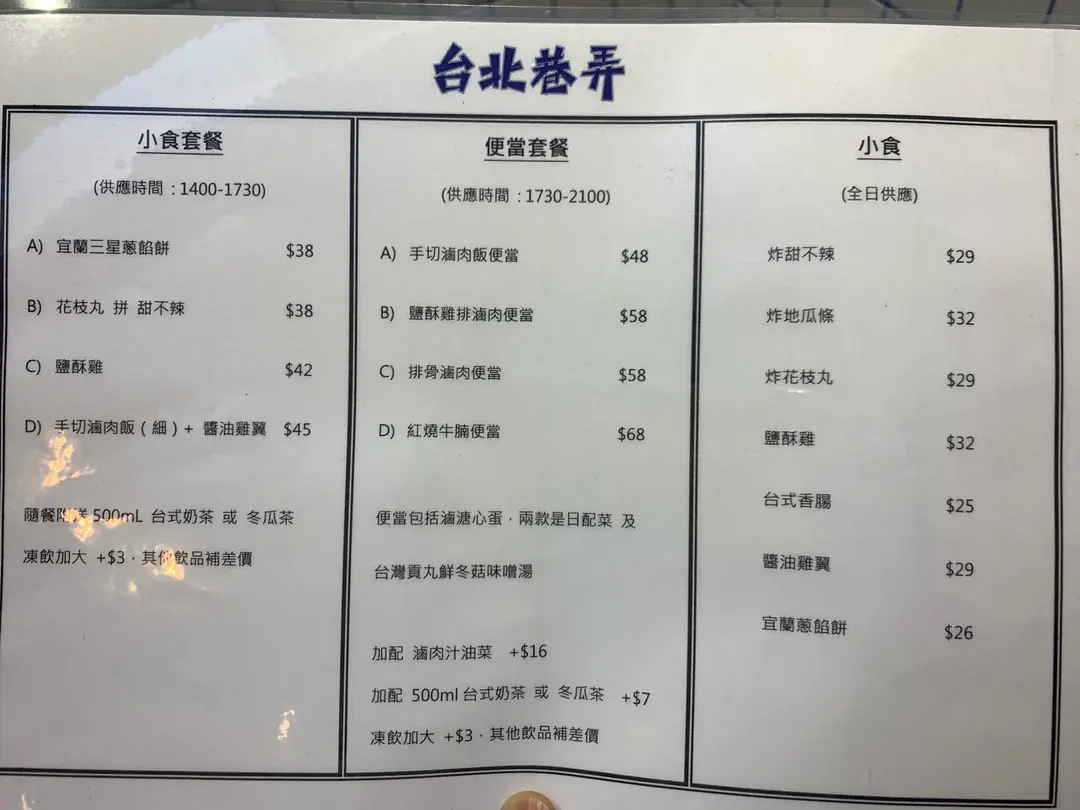 台北巷弄
小食套餐
(供應時間 : 1400-1730)
A) 宜蘭三星蔥餡餅 $38
B) 花枝丸 拼 甜不辣 $38
C) 鹽酥雞 $42
D) 手切滷肉飯 ( 細 ) + 醬油雞翼 $45
隨餐附送 500mL 台式奶茶 或 冬瓜茶
凍飲加大 +$3 · 其他飲品補差價
便當套餐
(供應時間 : 1730-2100)
A) 手切滷肉飯便當 $48
B) 鹽酥雞排滷肉便當 $58
C) 排骨滷肉便當 $58
D) 紅燒牛腩便當 $68
便當包括滷溏心蛋，兩款是日配菜 及
台灣貢丸鮮冬菇味噌湯
加配 滷肉汁油菜 +$16
加配 500ml 台式奶茶 或 冬瓜茶 +$7
凍飲加大 +$3 · 其他飲品補差價
小食
(全日供應)
炸甜不辣 $29
炸地瓜條 $32
炸花枝丸 $29
鹽酥雞 $32
台式香腸 $25
醬油雞翼 $29
宜蘭蔥餡餅 $26